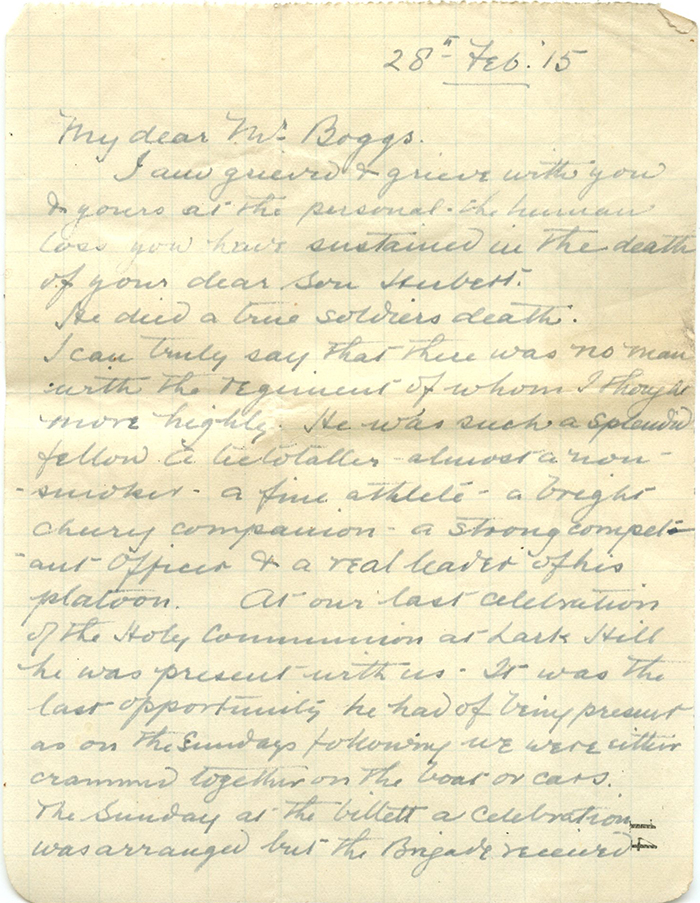 28" Feb. '15
My dear Mr Boggs.
I am grieved & grieve with you
& yours at the personal - the human
loss you have sustained in the death
of your dear Son Hubert.
He died a true soldiers death.
I can truly say that there was no man
with the regiment of whom I thought
more highly. He was such a splendid
fellow a teetotaller - almost a non-
-smoker - a fine athlete - a bright
cheery companion - a strong compet-
-ant Officer & a real leader of his
platoon. At our last celebration
of the Holy Communion at Lark Hill
he was present with us - It was the
last opportunity he had of being present
as on the Sundays following we were either
crammed together on the boat or cars.
The Sunday at the billett a celebration
was arranged but the Brigade received